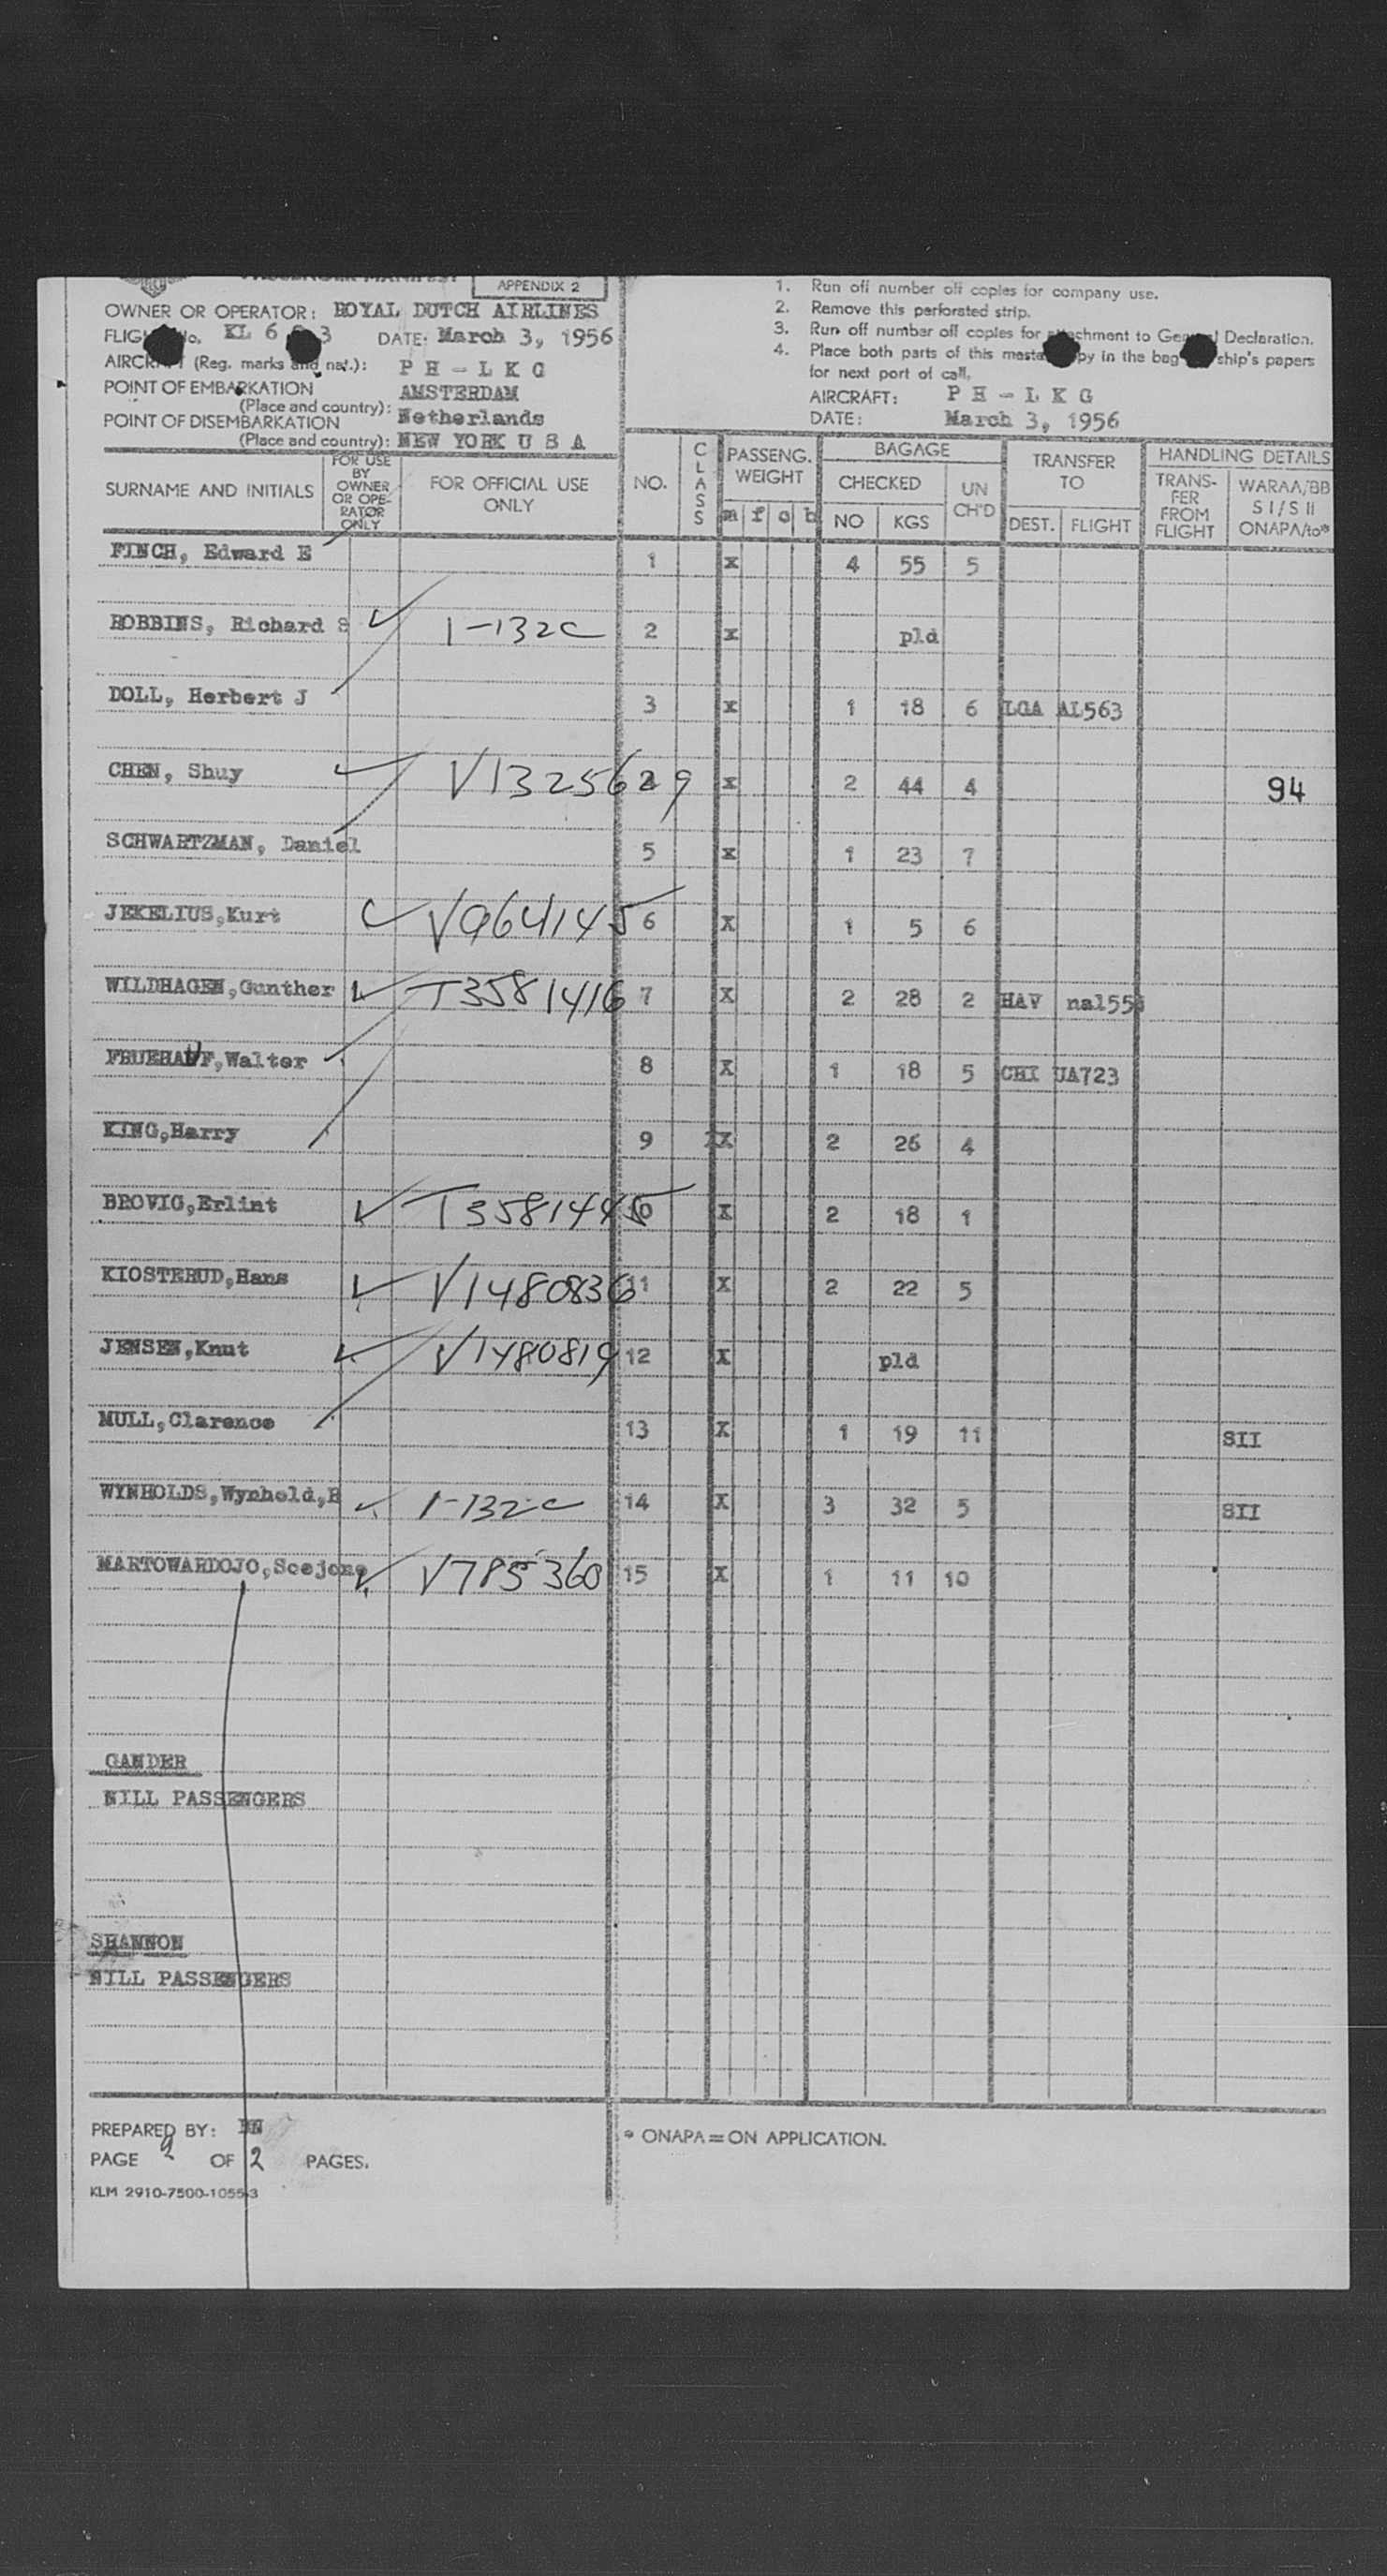 APPENDIX 2
OWNER OR OPERATOR: ROYAL DUTCH AIRLINES
KL 6 3 DATE: March 3, 1956
(Reg. marks and nat.): P H - L K G
POINT OF EMBARKATION AMSTERDAM
(Place and country): Netherlands
POINT OF DISEMBARKATION
(Place and country): NEW YORK U S A
1. Run off number off copies for company use.
2. Remove this perforated strip.
3. Run off number off copies for Declaration.
4. Place both parts of this in the bag ship's papers
for next port of call.
AIRCRAFT: P H - L K G
DATE: March 3, 1956
SURNAME AND INITIALS
FOR USE BY OWNER OR OPE- RATOR ONLY
FOR OFFICIAL USE ONLY
NO.
CLASS
PASSENG. WEIGHT
m f c b
BAGAGE
CHECKED
NO KGS
UN CH'D
TRANSFER TO
DEST. FLIGHT
HANDLING DETAILS
TRANS- FER FROM FLIGHT
WARAA/BB S I / S II ONAPA/to*
FINCH, Edward E 1 x 4 55 5
ROBBINS, Richard S 1-132C 2 x pld
DOLL, Herbert J 3 x 1 18 6 LGA AL563
CHEN, Shuy V1325629 4 x 2 44 4 94
SCHWARTZMAN, Daniel 5 x 1 23 7
JEKELIUS,Kurt V964145 6 X 1 5 6
WILDHAGEN,Gunther T3581416 7 X 2 28 2 HAV
FRUEHAUF,Walter 8 X 1 18 5 CHI UA723
KING,Harry 9 X 2 26 4
BROVIG,Erlint T3581445 10 X 2 18 1
KIOSTERUD,Hans V1480836 11 X 2 22 5
JENSEN,Knut V1480819 12 X pld
MULL,Clarence 13 X 1 19 11 SII
WYNHOLDS,Wynhold,H 1-132-C 14 X 3 32 5 SII
MARTOWARDOJO,Soejono V785360 15 X 1 11 10
GANDER
NILL PASSENGERS
SHANNON
NILL PASSENGERS
PREPARED BY:
PAGE 2 OF 2 PAGES.
KLM 2910-7500-1055-3
* ONAPA = ON APPLICATION.